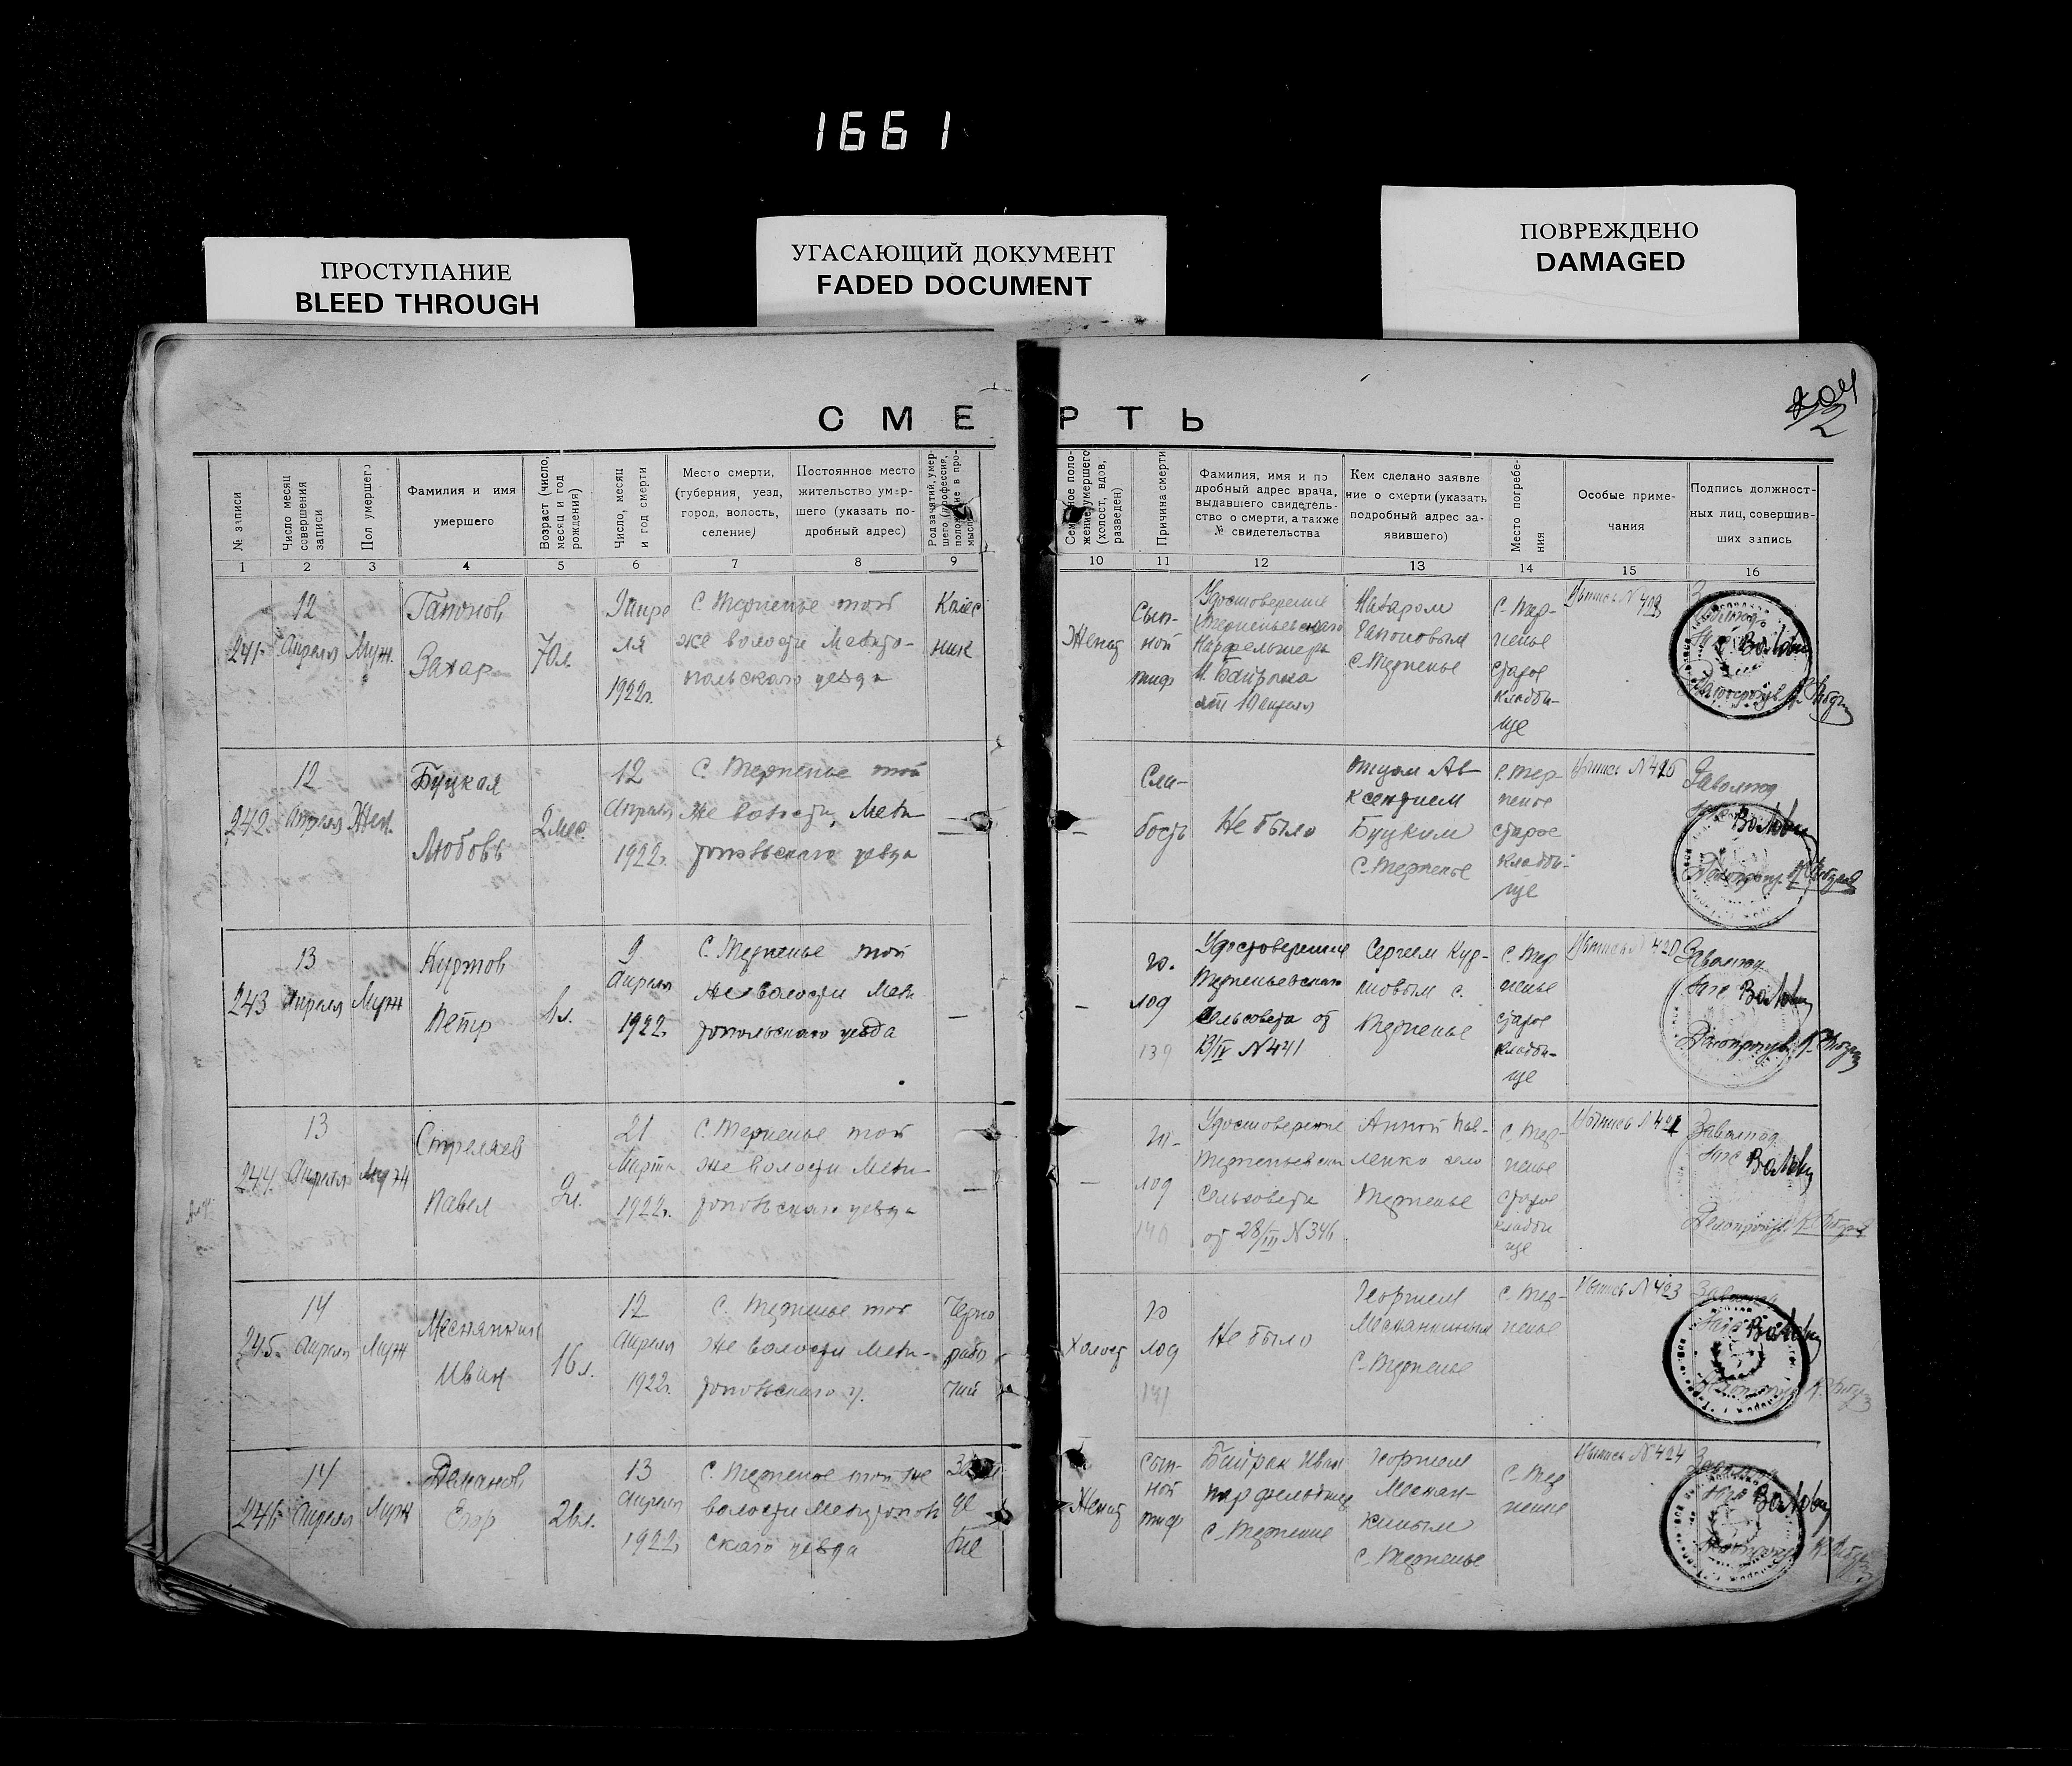 1661
ПРОСТУПАНИЕ
BLEED THROUGH
УГАСАЮЩИЙ ДОКУМЕНТ
FADED DOCUMENT
ПОВРЕЖДЕНО
DAMAGED
СМЕРТЬ
№ записи
Число месяц
совершения
записи
Пол умершего
Фамилия и имя
умершего
Возраст (число,
месяц и год
рождения)
Число, месяц
и год смерти
Место смерти,
(губерния, уезд,
город, волость,
селение)
Постоянное место
жительство умер-
шего (указать по-
дробный адрес)
Род занятий, умер-
шего, (профессия,
положение в про-
Семейное поло-
жение умершего
(холост, вдов,
разведен)
Причина смерти
Фамилия, имя и по
дробный адрес врача,
выдавшего свидетель-
ство о смерти, а также
№ свидетельства
Кем сделано заявле
ние о смерти (указать
подробный адрес за-
явившего)
Место погребе-
ния
Особые приме-
чания
Подпись должност-
ных лиц, совершив-
ших запись
1 2 3 4 5 6 7 8 9 10 11 12 13 14 15 16
241.
12
Апреля
Муж.
Гапонов
Захар
70л.
Апре
ля
1922г.
С. Терпенье той
же волости Мелито-
польского уезда
Колес
ник
Женат
Сып-
ной
тиф
Удостоверение
Терпеньевского
И. Байрака
от 10 апреля
Назаром
Гапоновым
С. Терпенье
С. Тер-
пенье
старое
кладби-
ще
Выпись N
242.
12
Апреля
Жен.
Буцкая
Любовь
2 мес.
12
Апреля
1922г.
С. Терпенье той
же волости, Мели
топольского уезда
—
—
Сла-
бость
Не было
Отцом Ав-
ксентием
Буцким
С. Терпенье
С. Тер-
пенье
старое
кладби-
ще
Выпись N
Заволпод
243
13
Апреля
Муж
Куртов
Петр
1л.
9
Апреля
1922г.
С. Терпенье той
же волости Мели
топольского уезда
—
—
го-
лод
139
Удостоверение
Терпеньевского
Сельсовета от
13/IV N 441
Сергеем Кур-
товым с.
Терпенье
С. Тер
пенье
старое
кладби-
ще
Выпись N 420
244.
13
Апреля
Муж
Стреляев
Павел
2л.
21
Марта
1922г.
С. Терпенье той
же волости Мели-
топольского уезда
—
—
го-
лод
140
Удостоверение
Терпеньевского
Сельсовета
от 28/III N 346
Анной Пав-
ленко село
Терпенье
С. Тер-
пенье
старое
кладби
ще
Выпись N 421
245.
14
Апреля
Муж
Меснянкин
Иван
16л.
12
Апреля
1922г.
С. Терпенье той
же волости Мели-
топольского у.
Черно
рабо
чий
Холост
го
лод
141
Не было
Георгием
Меснянкиным
С. Терпенье
С. Тер-
пенье
Выпись N 423
246.
14
Апреля
Муж
Деманов
Егор
26л.
13
Апреля
1922г.
С. Терпенье той же
волости Мелитополь
ского уезда
Женат
Сып-
ной
тиф
Байрак Иван
С. Терпение
Георгием
Меснян-
киным
С. Терпенье
С. Тер
пенье
Выпись N 424